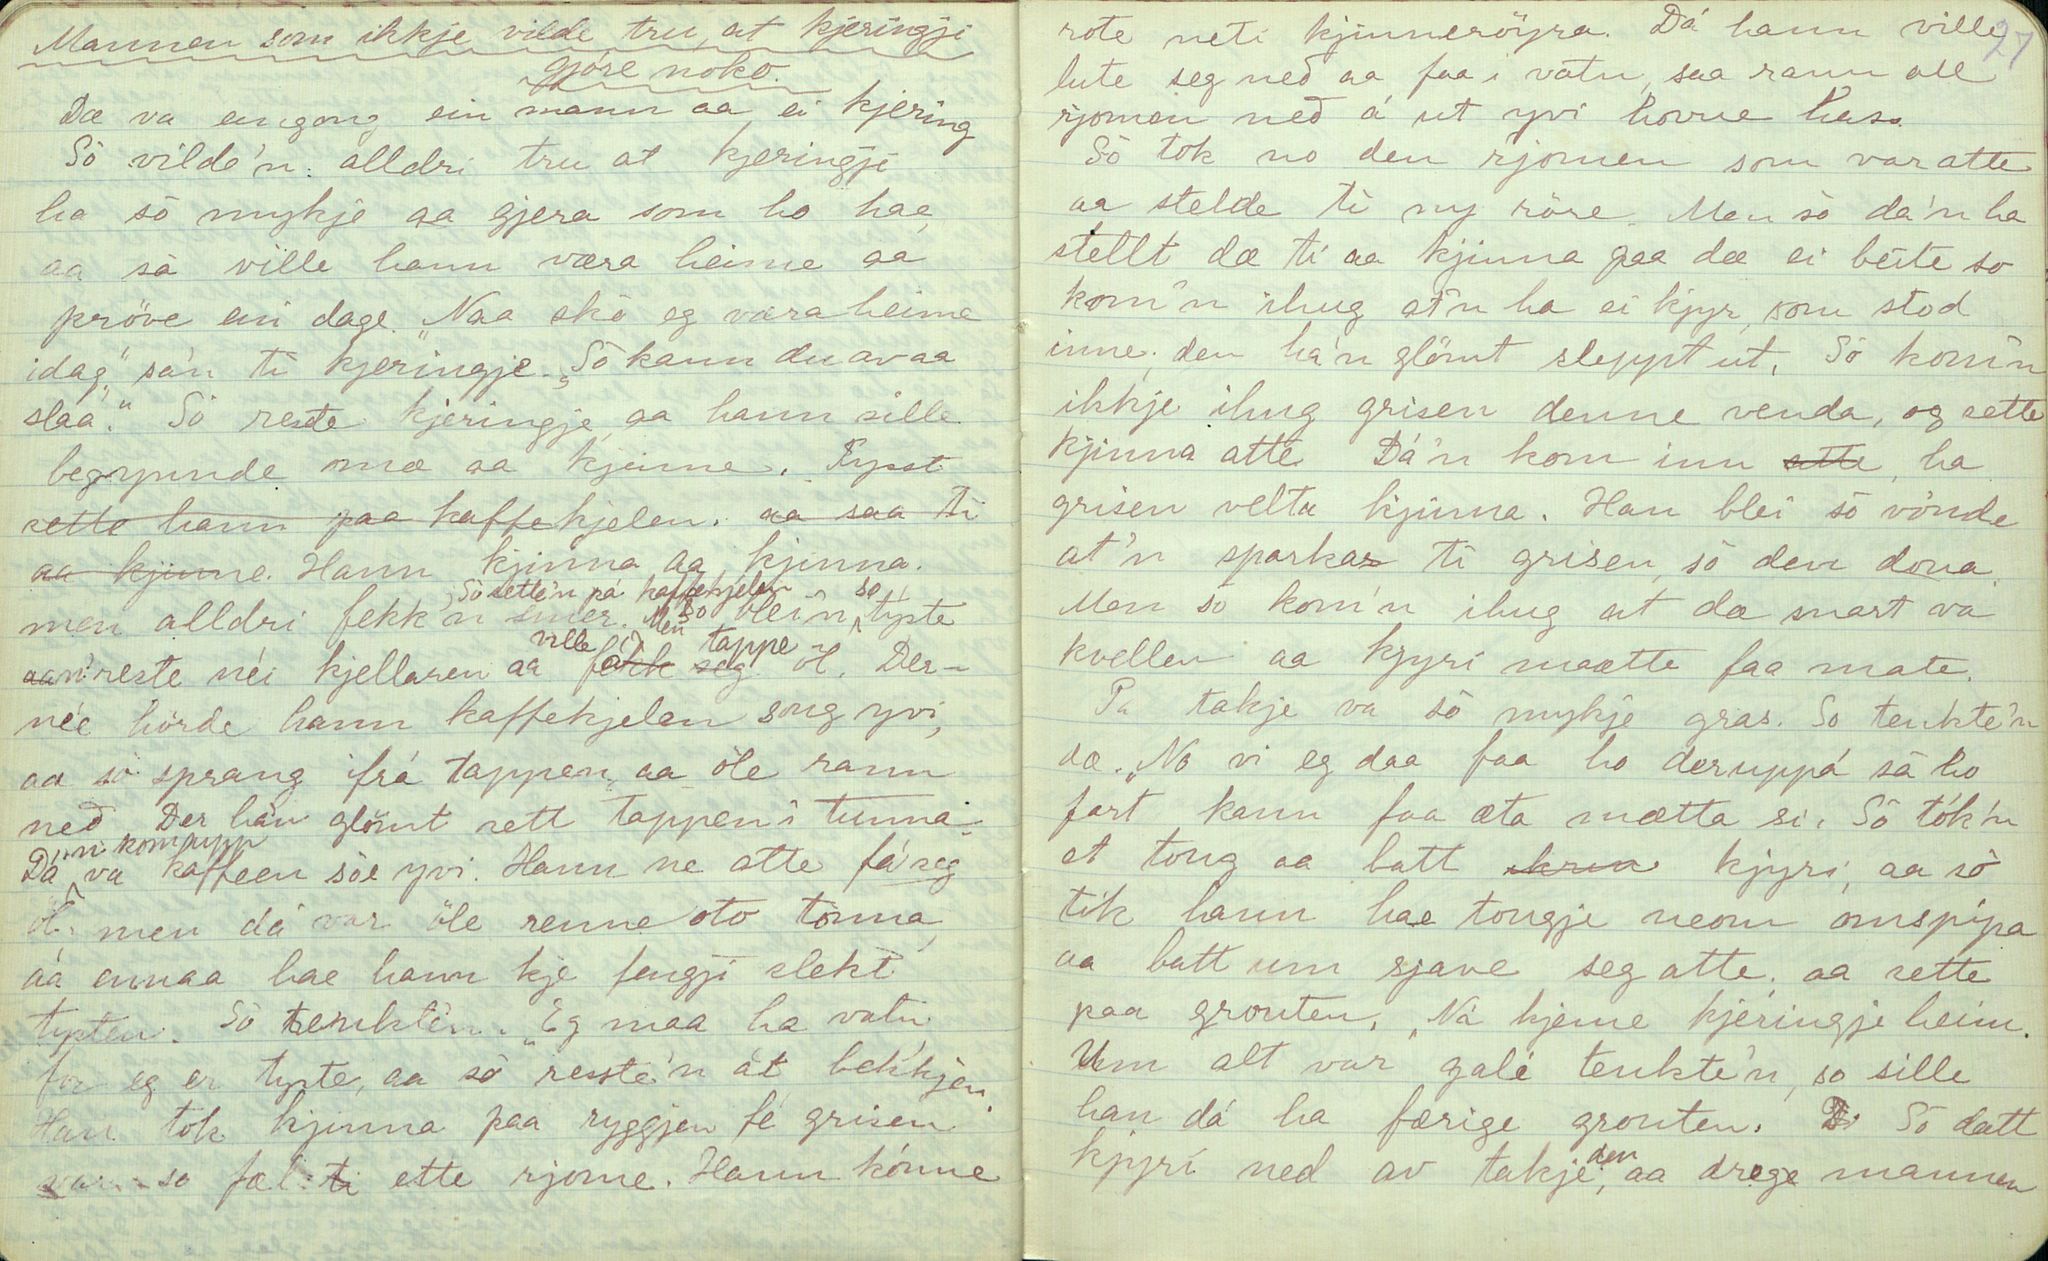 Mannen som ikkje vilde tru, at kjeringji
gjöre noko.
Dæ va eingong ein mann aa ei kjering
Sô vilde'n alldri tru at kjeringji
ha sô mykje aa gjera som ho hae,
aa sô ville hann væra heime aa
pröve ein dage. „Naa skô eg væra heime
idag," sa'n ti kjeringje. „Sô kann du av aa
slaa." Sô reste kjeringje, aa hann sille
begrynnde mæ aa kjinne. Fysst
sette hann paa kaffekjelen. aa saa ti
aa kjinne. Hann kjinna aa kjinna.
Sô sette'n på kaffekjelen so
men alldri fekk'n smer. Men so blei'n tyste
ville tappe
aa'n reste néi kjellaren aa fekk seg öl. Der-
née hörde hann kaffekjelen song yvi,
aa sô sprang ifrá tappen, aa öle rann
ned. Der ha'n glömt sett tappen i tunna.
'n kom upp
Dá va kaffeen söe yvi. Hann ne atte fá seg
öl, men dá var öle renne oto tönna,
aa ennaa hae hann kje fengji slekt
tysten. Sô tenkte'n. „Eg maa ha vatn,
for eg er tyste, aa sô resste'n át bekkjen.
Han tok kjinna paa ryggjen fé grisen
var so fæl ti ette rjome. Hann kónne
27
rote neti kjinneröyra. Dá hann ville
lute seg ned aa faa i vatn, saa rann all
rjomen ned á ut yvi hovue hass.
Sô tok no den rjomen som var atte
aa stelde ti ny röre. Men sô da'n ha
stellt dæ ti aa kjinna paa dæ ei beite so
kom'n ihug at'n ha ei kjyr, som stod
inne, den ha'n glömt sleppt ut. Sô kom'n
ikkje ihug grisen denne venda, og sette
kjinna atte. Dá'n kom inn atte, ha
grisen velta kjinna. Han blei sô vonde
at'n sparkar ti grisen, sô den dona.
Men so kom'n ihug at dæ snart va
kvellen aa kjyri maatte faa mate.
Pa takje va sô mykje gras. So tenkte'n
sæ. „No vi eg daa faa ho deruppá sâ ho
fort kann faa æta mætta si. Sô tók'n
et toug aa batt kjyri, aa sô
tik hann hae tougje neom omspipa
aa batt um sjave seg atte, aa sette
paa grouten. „Ná kjeme kjeringje heim.
Um alt var galé tenkte'n, so sille
han dá ha færige grouten. Sô datt
den
kjyri ned av takje, aa drege mannen